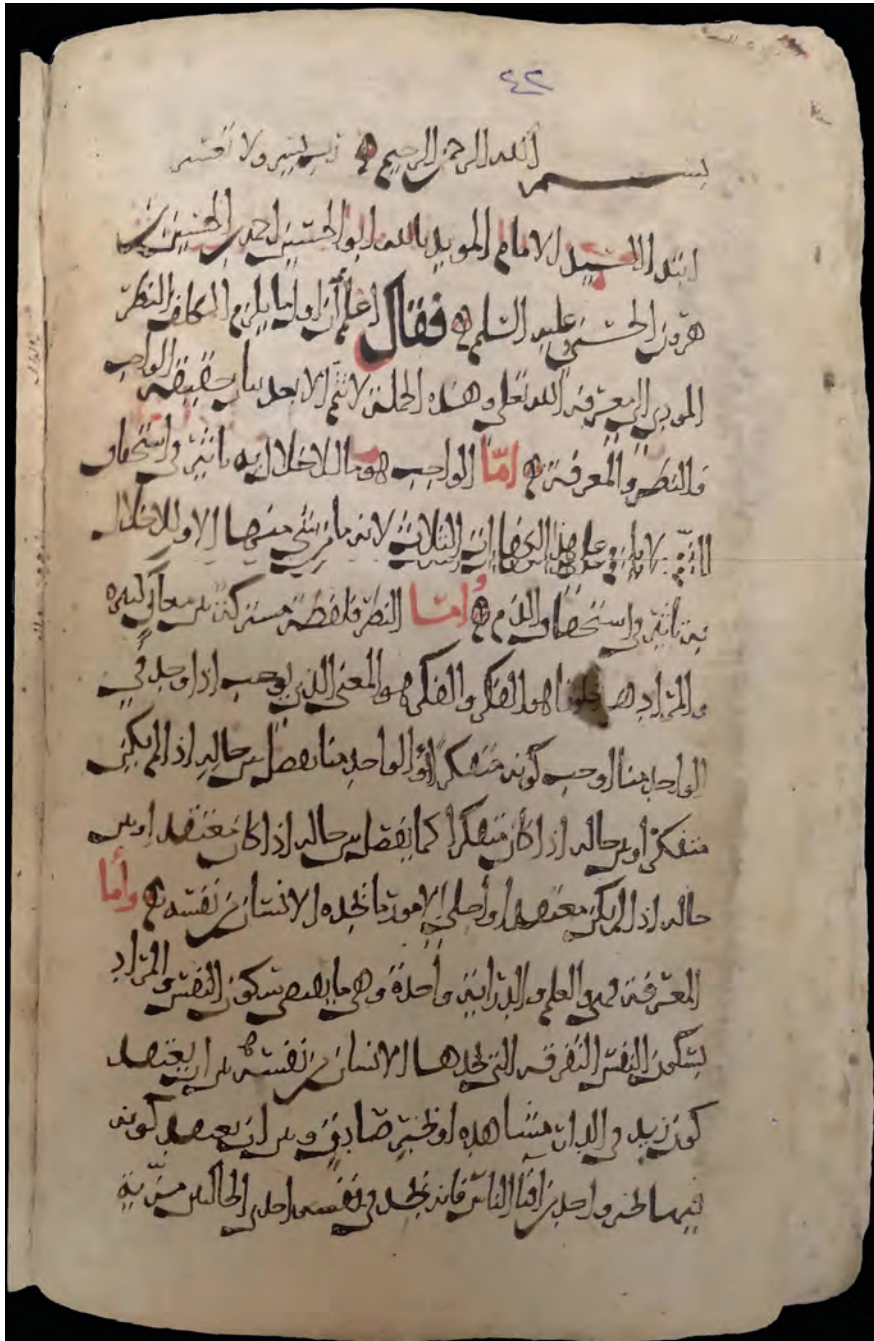 ٤٢
بسم الله الرحمن الرحيم رب يسر ولا تعسر
ابتدا السيد الامام المويد بالله ابو الحسين احمد بن الحسين بن
هرون الحسني عليه السلم فقال اعلم أن اول ما يلزم المكلف النظر
المودي الى معرفة الله تعلى وهذه الجملة لا تتم الا بعد بيان حقيقة الواجب
والنظر والمعرفة امّا الواجب فهو ما للاخلال به تاثير في استحقاق
الذم وعلى هذا الكفارات الثلاث لانه ما من شي منها الا وللاخلال
به تاثير في استحقاق الذم وأمّا النظر فلفظة مشتركة بين معان كثيره
والمراد هو الفكر والفكر هو المعنى الذي يوجب اذا وجد في
الواحد منا اوجب كونه متفكرا والواحد منا يفصل بين حاله اذا لم يكن
متفكرا وبين حاله اذا كان متفكرا كما يفصل بين حاله اذا كان معتقدا وبين
حاله اذا لم يكن معتقدا وأجلى الامور ما يجده الانسان من نفسه وأما
المعرفة فهي والعلم والدراية واحدة وهي ما يقتضي سكون النفس والمراد
بسكون النفس التفرقه التي يجدها الانسان من نفسه بين ان يعتقد
كون زيد في الدار مشاهده او بخبر صادق وبين ان يعتقد كونه
فيها لخبر واحد من افنا الناس فانه يجد في نفسه احدى الحالين مزية